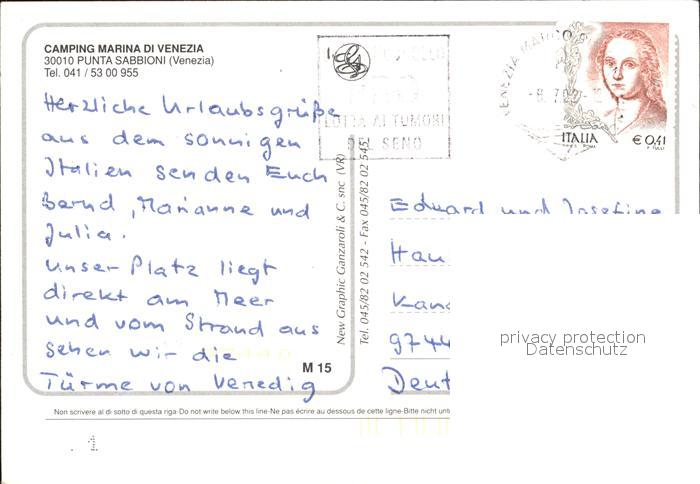 CAMPING MARINA DI VENEZIA
30010 PUNTA SABBIONI (Venezia)
Tel. 041 / 53 00 955
Herzliche Urlaubsgrüße
aus dem sonnigen
Italien senden Euch
Bernd, Marianne und
Julia.
Unser Platz liegt
direkt am Meer
und vom Strand aus
sehen wir die
Türme von Venedig
M 15
New Graphic Ganzaroli & C. snc (VR)
Tel. 045/82 02 542 - Fax 045/82 02 545
LOTTA AI TUMORI
SENO
VENEZIA
ITALIA
€ 0,41
Eduard und Josefine
Hau
Kan
9744
Deut
privacy protection
Datenschutz
Non scrivere al di sotto di questa riga-Do not write below this line-Ne pas écrire au dessous de cette ligne-Bitte nicht unt
1